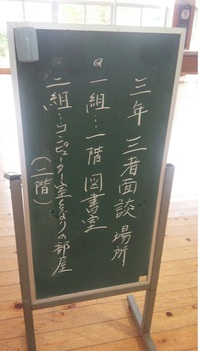 三年 三者面談 場所
@一組…一階 図書室
@二組…コンピューター室となりの部屋
(二階)